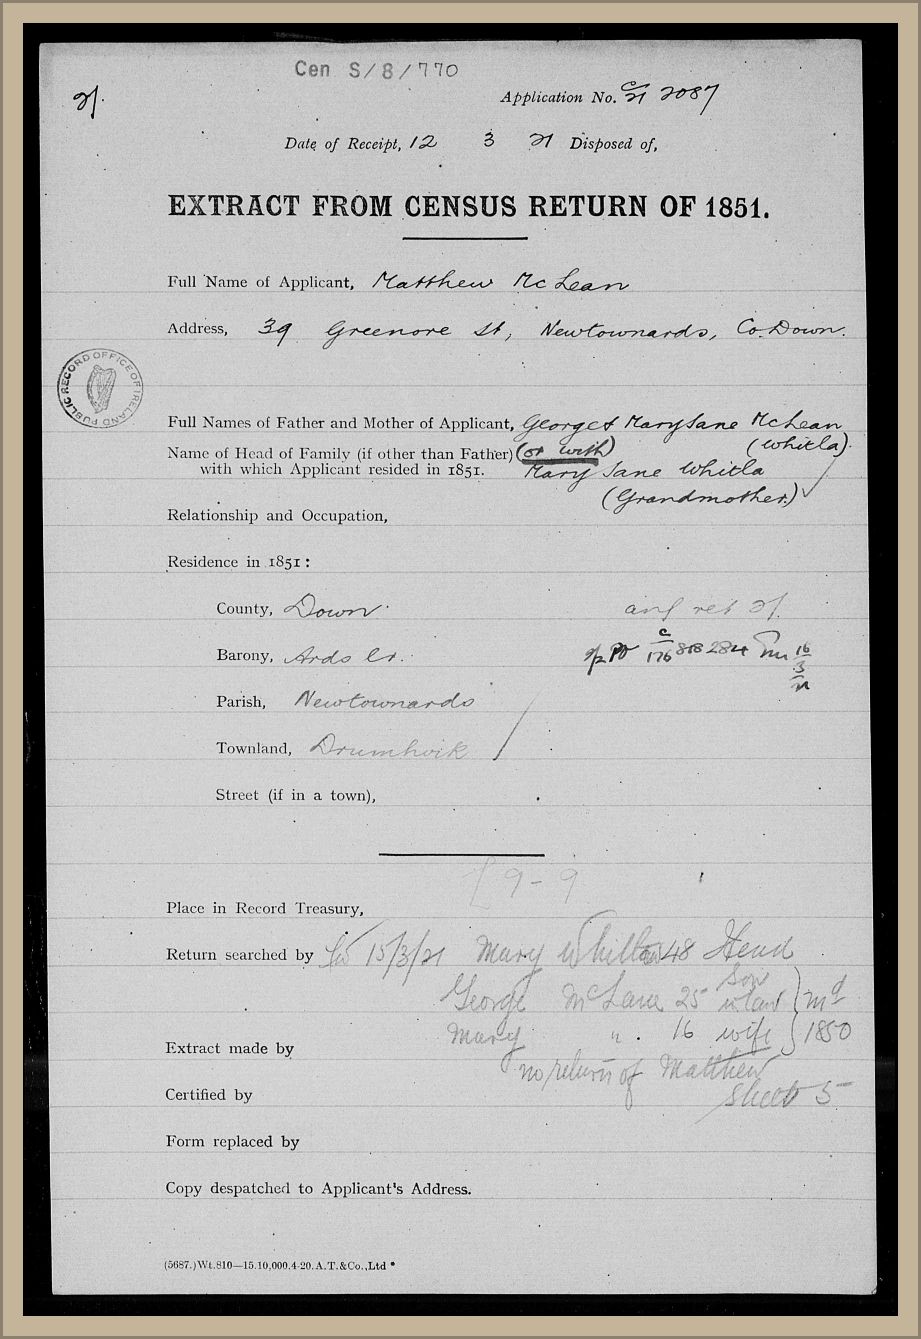 Cen S/8/770
21.
Application No. C/21 2087
Date of Receipt, 12 3 21 Disposed of,
EXTRACT FROM CENSUS RETURN OF 1851.
Full Name of Applicant, Matthew McLean
Address, 39 Greenore St, Newtownards, Co. Down.
PUBLIC RECORD OFFICE OF IRELAND
Full Names of Father and Mother of Applicant, George & Mary Jane McLean
(Whitla).
Name of Head of Family (if other than Father) (or with)
with which Applicant resided in 1851. Mary Jane Whitla
(Grandmother)
Relationship and Occupation,
Residence in 1851:
County, Down.
ansd ret 21.
Barony, Ards Lr.
C/176 818284 16/3/21
Parish, Newtownards
Townland, Drumhirk
Street (if in a town),
[9-9
Place in Record Treasury,
Return searched by 15/3/21 Mary 48 Head
George McLane 25 son in law } md
Mary " . 16 wife } 1850
Extract made by
no return of Matthew
sheet 5
Certified by
Form replaced by
Copy despatched to Applicant's Address.
(5687.)Wt.810—15.10,000.4-20.A.T.&Co.,Ltd